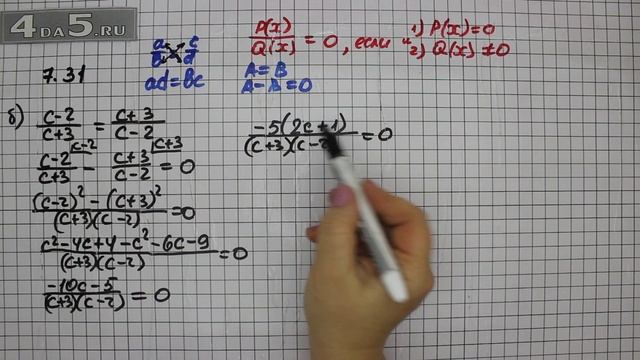 4 DA 5.RU
7.31
a/b c/d
ad=bc
P(x)/Q(x) = 0, если 1) P(x)=0
и 2) Q(x)≠0
A=B
A-B=0
б) c-2/c+3 = c+3/c-2
c-2/c+3 |c-2 - c+3/c-2 |c+3 = 0
(c-2)²-(c+3)²/(c+3)(c-2) =0
c²-4c+4-c²-6c-9/(c+3)(c-2) =0
-10c-5/(c+3)(c-2) = 0
-5(2c+1)/(c+3)(c-2) =0